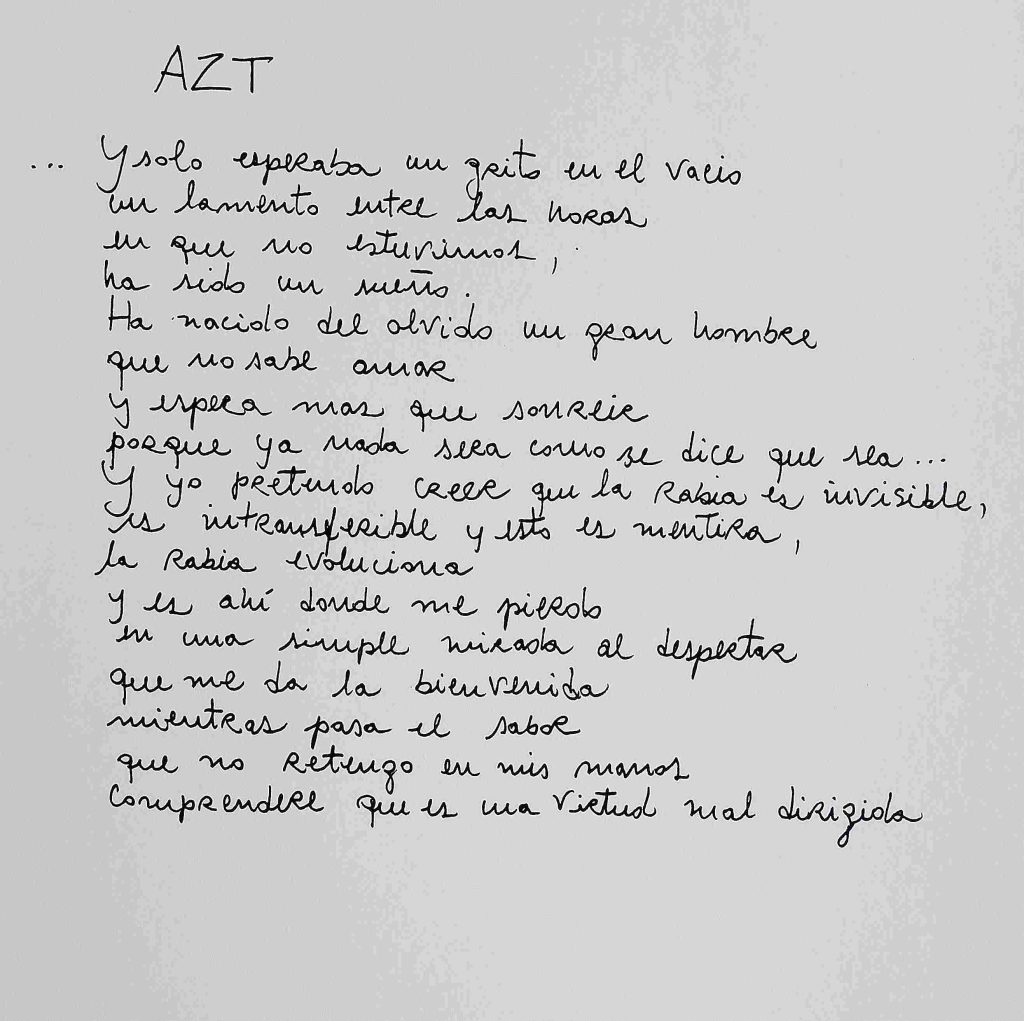 AZT
... Y solo esperaba un grito en el vacio
un lamento entre las horas
en que no estuvimos,
ha sido un sueño.
Ha nacido del olvido un gran hombre
que no sabe amar
y espera mas que sonreir
porque ya nada sera como se dice que sea...
Y yo pretendo creer que la rabia es invisible,
es intransferible y esto es mentira,
la rabia evoluciona
y es ahí donde me pierdo
en una simple mirada al despertar
que me da la bienvenida
mientras pasa el sabor
que no retengo en mis manos
comprendere que es una virtud mal dirigida